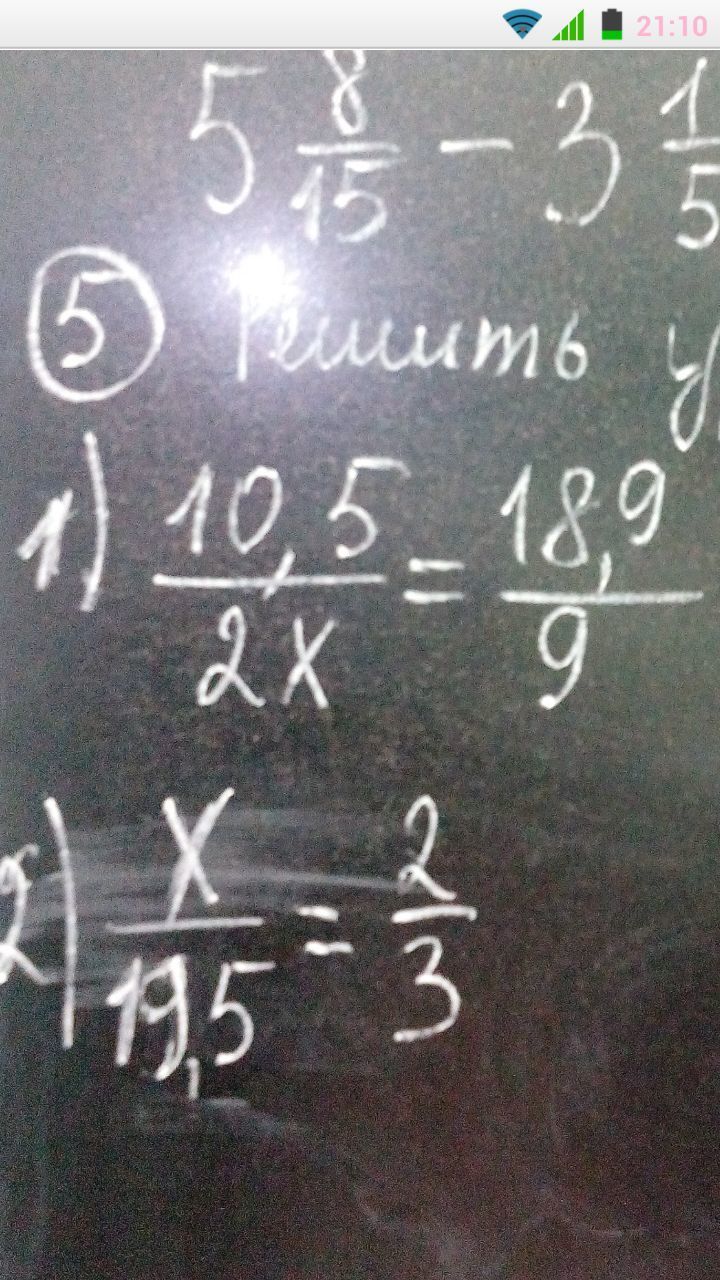 21:10
5 8/15 - 3 1/5
5 Решить у
1) 10,5/2x = 18,9/9
2) x/19,5 = 2/3